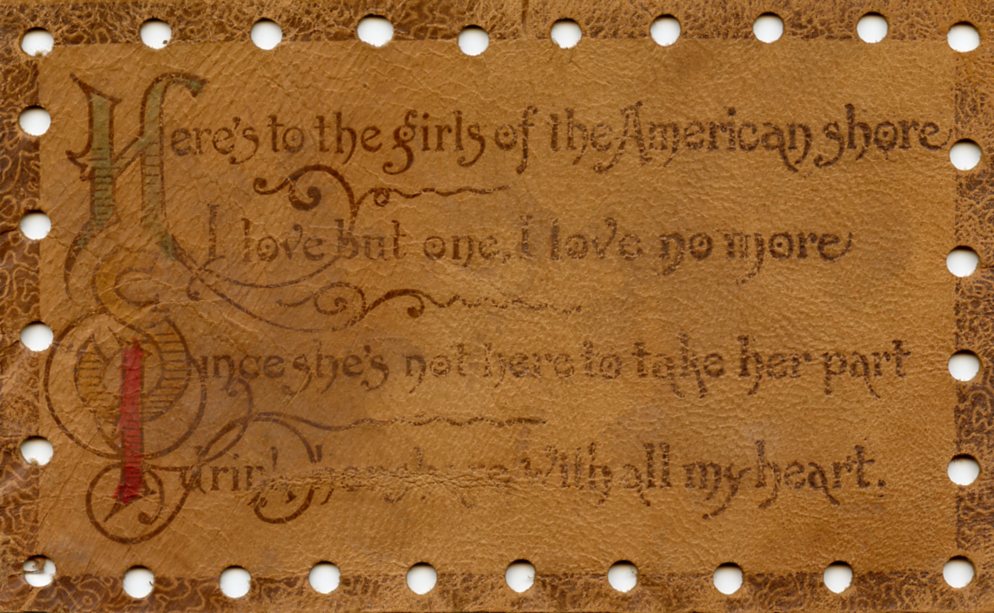 Here's to the girls of the American shore
I love but one, I love no more
Since she's not here to take her part
I drink her share with all my heart.